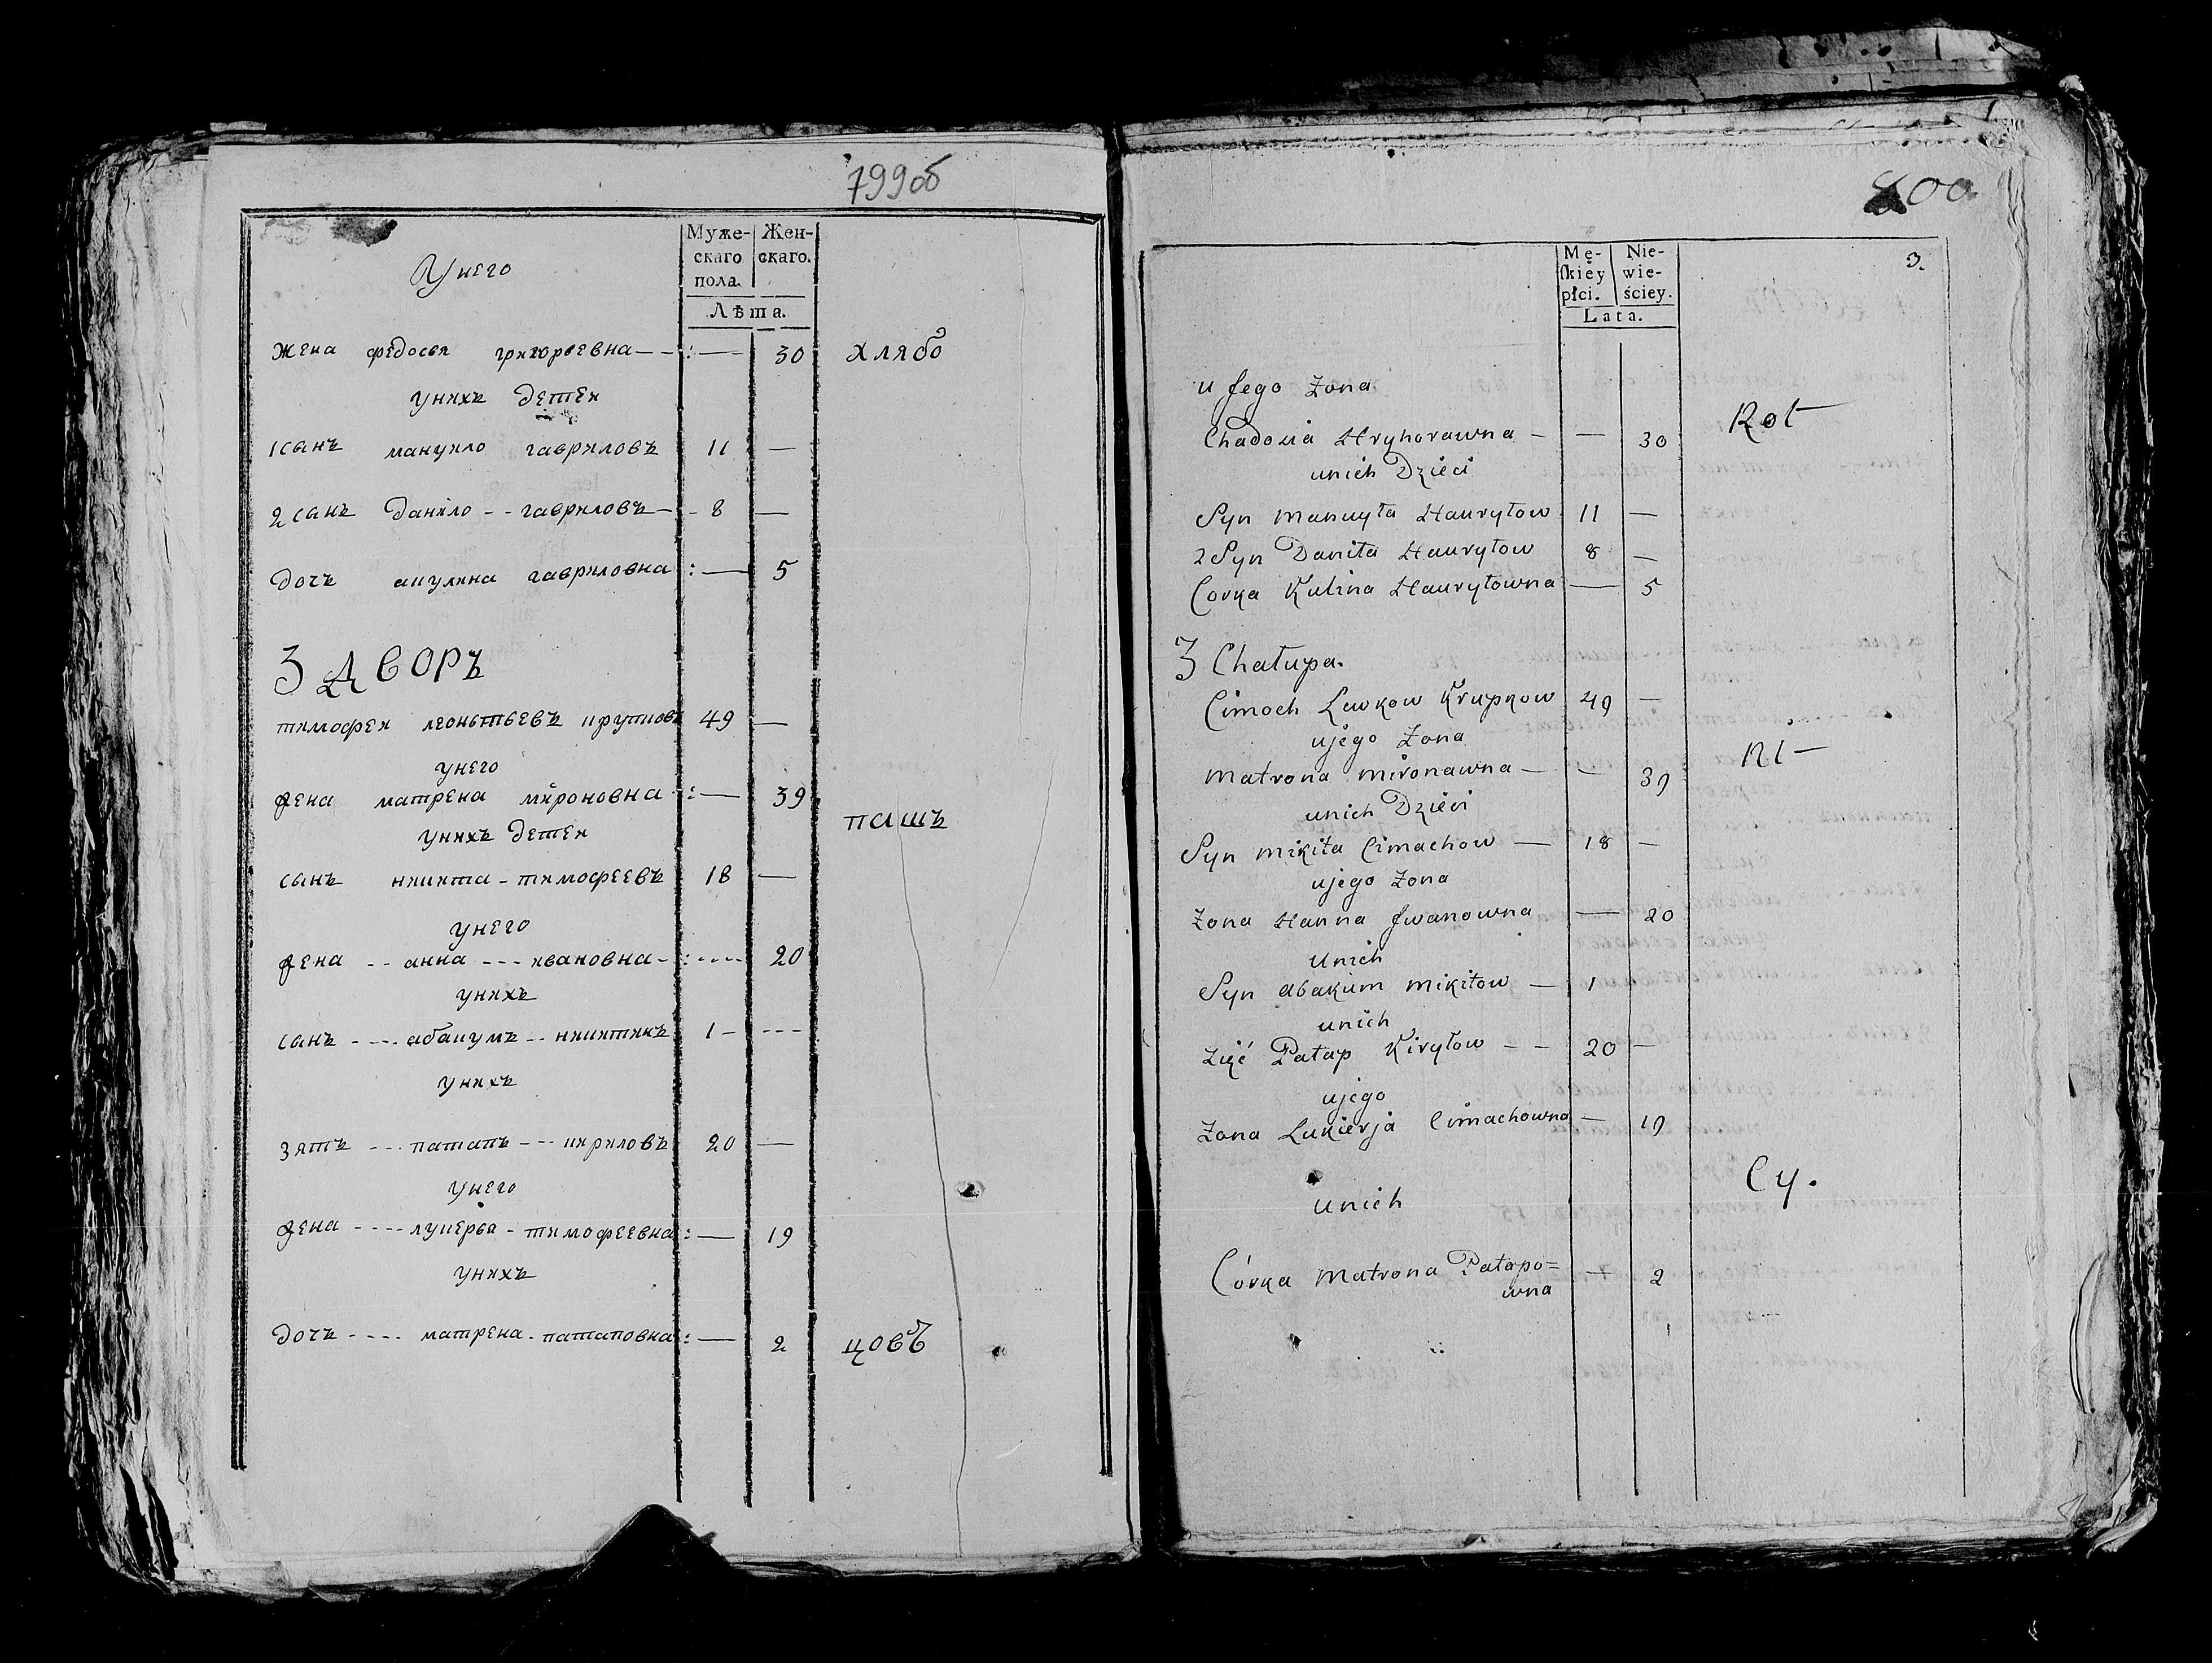 799об
Муже-
скаго
пола.
Жен-
скаго.
Лѣта.
Унего
жена федосья григорьевна 30 хлябо
унихъ детеи
1 сынъ мануило гавриловъ 11 —
2 сынъ данило гавриловъ 8 —
дочъ акулина гавриловна — 5
3 дворъ
тимофеи леонътьевъ крупковъ 49 —
унего
жена матрена мироновна — 39
пашъ
унихъ детеи
сынъ никита тимофеевъ 18 —
унего
жена анна ивановна 20
унихъ
сынъ абакумъ никитинъ 1
унихъ
зять патапъ кириловъ 20 —
унего
жена лукерья тимофеевна — 19
унихъ
дочъ матрена патаповна — 2 цовъ
800
3.
Mę-
skiéy
płci.
Nie-
wie-
ściey.
Lata.
u Jego Żona
Rol
Chadosia Hryhorawna — — 30
unich Dzieci
Syn Manuyła Hauryłow 11 —
2 Syn Daniła Hauryłow 8 —
Corka Kulina Hauryłowna — 5
3 Chałupa.
Cimoch Lewkow Krupkow 49 —
ujego Żona
Ni
Matrona Mironawna — — 39
unich Dzieci
Syn Mikita Cimachow — 18 —
ujego Żona
Żona Hanna Jwanowna — 20
Unich
Syn Abakum Mikitow — 1
unich
Zięć Patap Kiryłow — — 20 —
ujego
Żona Lukierja Cimachowna — 19
Cy.
unich
Córka Matrona Patapo=
wna — 2